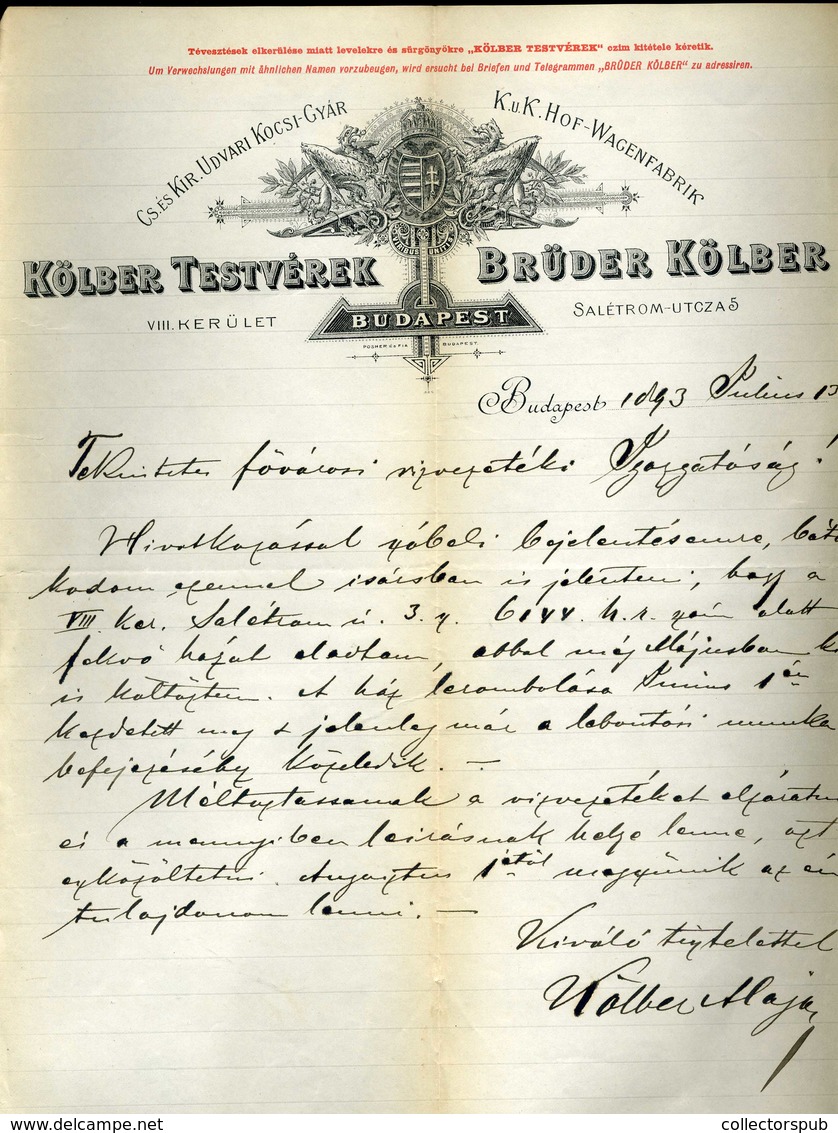 Tévesztések elkerülése miatt levelekre és sürgönyökre „KÖLBER TESTVÉREK" czim kitétele kéretik.
Um Verwechslungen mit ähnlichen Namen vorzubeugen, wird ersucht bei Briefen und Telegrammen „BRÜDER KÖLBER" zu adressiren.
CS. ÉS KIR. UDVARI KOCSI-GYÁR
K. u. K. HOF-WAGENFABRIK
KÖLBER TESTVÉREK
BRÜDER KÖLBER
VIII. KERÜLET
BUDAPEST
SALÉTROM-UTCZA 5
POSNER és FIA BUDAPEST.
Budapest 1893 Julius 13
Tekintetes fővárosi vizvezetéki Igazgatóság!
Hivatkozással szóbeli bejelentésemre, bát
kodom ezennel irásban is jelenteni, hogy a
VIII. ker. Salétrom u. 3. sz. 6144. h.r. szám alatt
fekvő házat eladtam, abból még Májusban ki
is költöztem. A ház lerombolása Junius 1én
kezdetett meg s jelenleg már a lebontási munka
befejezéséhez közeledik. —
Méltóztassanak a vizvezetéket elzáratni
és a mennyiben leirásnak helye lenne, azt
eszközöltetni. Augusztus 1étől megszünik az én
tulajdonom lenni. —
Kiváló tisztelettel
Kölber Alajos
collectorspub